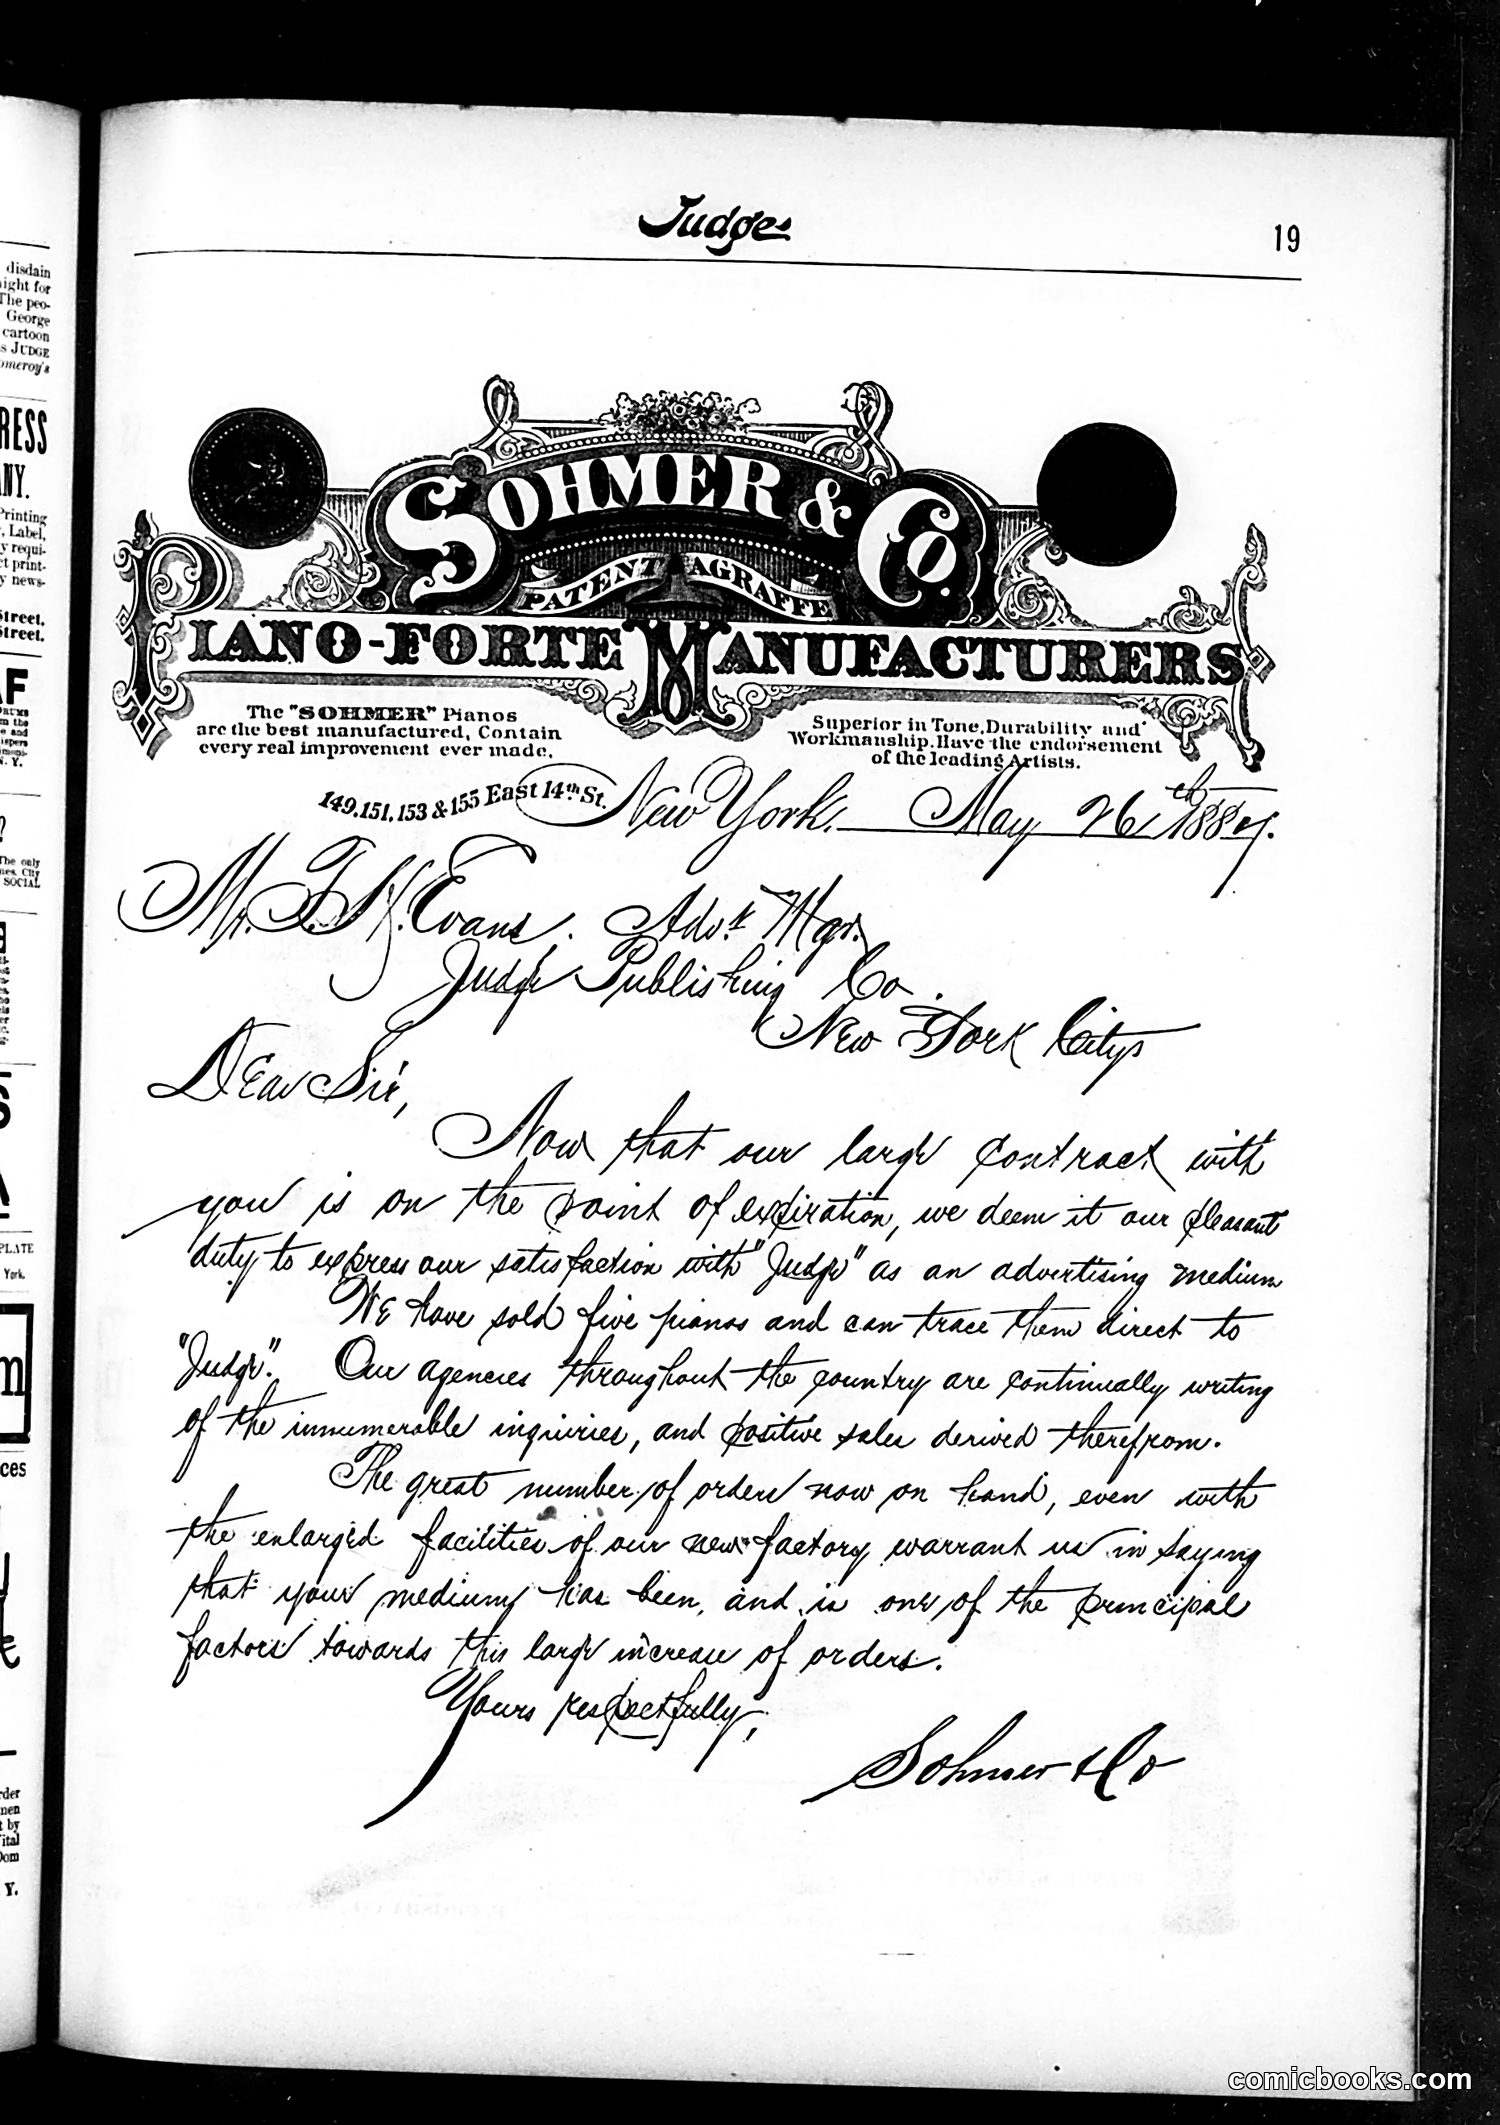 Judge
19
SOHMER & Co.
PATENT AGRAFFE
PIANO-FORTE MANUFACTURERS
The "SOHMER" Pianos
are the best manufactured, Contain
every real improvement ever made.
Superior in Tone, Durability and
Workmanship. Have the endorsement
of the leading Artists.
149, 151, 153 & 155 East 14th St. New York, May 26th 1887.
Mr. T. H. Evans. Advt. Mgr.
Judge Publishing Co.
New York City
Dear Sir,
Now that our large contract with
you is on the point of expiration, we deem it our pleasant
duty to express our satisfaction with "Judge" as an advertising medium
We have sold five pianos and can trace them direct to
"Judge". Our agencies throughout the country are continually writing
of the innumerable inquiries, and positive sales derived therefrom.
The great number of orders now on hand, even with
the enlarged facilities of our new factory warrant us in saying
that your medium has been, and is one of the principal
factors towards this large increase of orders.
Yours respectfully,
Sohmer & Co
disdain
ight for
The peo-
George
cartoon
s JUDGE
omeroy's
RESS
NY.
Printing
, Label,
y requi-
ct print-
y news-
Street.
Street.
AF
DRUMS
m the
e and
N. Y.
?
The only
nes. City
SOCIAL
PLATE
York.
m
ces
rder
men
t by
Vital
Dom
Y.
comicbooks.com